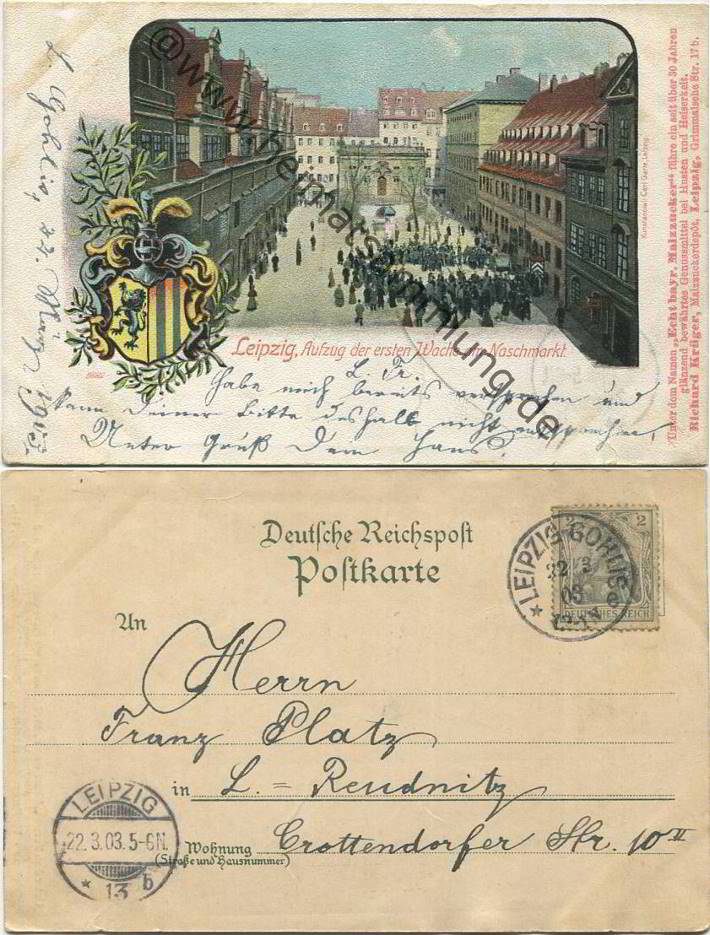 L. Gohlis, 22. März 1903
Leipzig, Aufzug der ersten Wache am Naschmarkt.
L. Fr.
Habe mich bereits versprochen und
kann Deiner Bitte deshalb nicht entsprechen,
Unter Gruß Dein Hans.
Kunstanstalt Carl Garte, Leipzig.
Unter dem Namen „Echt bayr. Malzzucker“ führe ein seit über 30 Jahren
glänzend bewährtes Genussmittel bei Husten und Heiserkeit.
Richard Krüger, Malzzuckerdepôt, Leipzig, Grimmaische Str. 17b.
@www.heimatsammlung.de
Deutsche Reichspost
Postkarte
LEIPZIG-GOHLIS
22 3
03
2 2
DEUTSCHES REICH
An
Herrn
Franz Platz
in L.=Reudnitz
Wohnung Crottendorfer Str. 10 II
(Straße und Hausnummer)
LEIPZIG
22.3.03.5-6N.
* 13 b